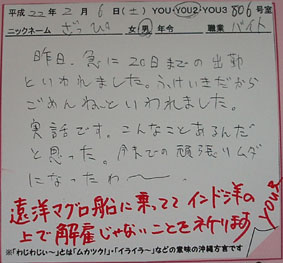 平成22年2月6日(土) YOU・YOU2・YOU3 806号室
ニックネーム ざっぴぃ 女・男 年令 職業 バイト
昨日、急に20日までの出勤
といわれました。ふけいきだから
ごめんねっといわれました。
実話です。こんなことあるんだ
と思った。今までの頑張りムダ
になったわ〜。
遠洋マグロ船に乗ってて インド洋の
上で解雇じゃないことを祈ります
YOU2
※「わじわじぃ〜」とは「ムカツク!」・「イライラ〜」などの意味の沖縄方言です